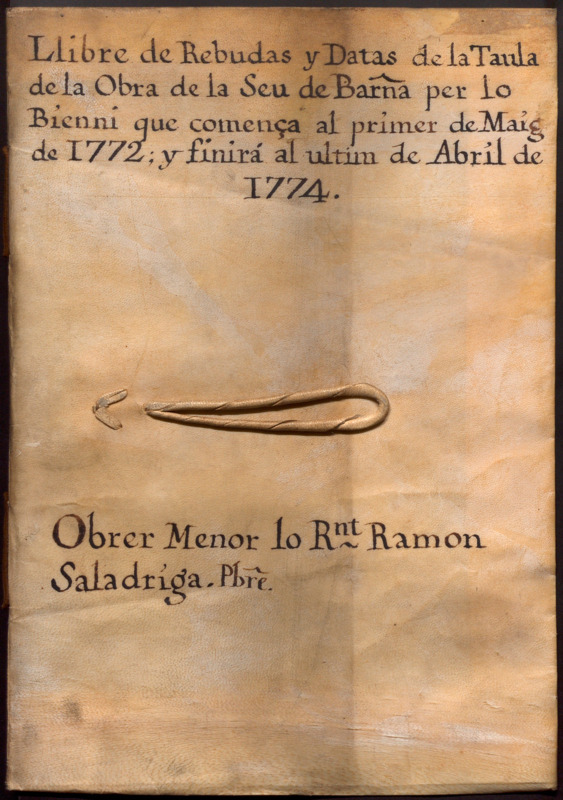 Llibre de Rebudas y Datas de la Taula
de la Obra de la Seu de Barñã per lo
Bienni que comença al primer de Maig
de 1772; y finirá al ultim de Abril de
1774.
Obrer Menor lo Rnt Ramon
Saladriga. Pbrẽ.